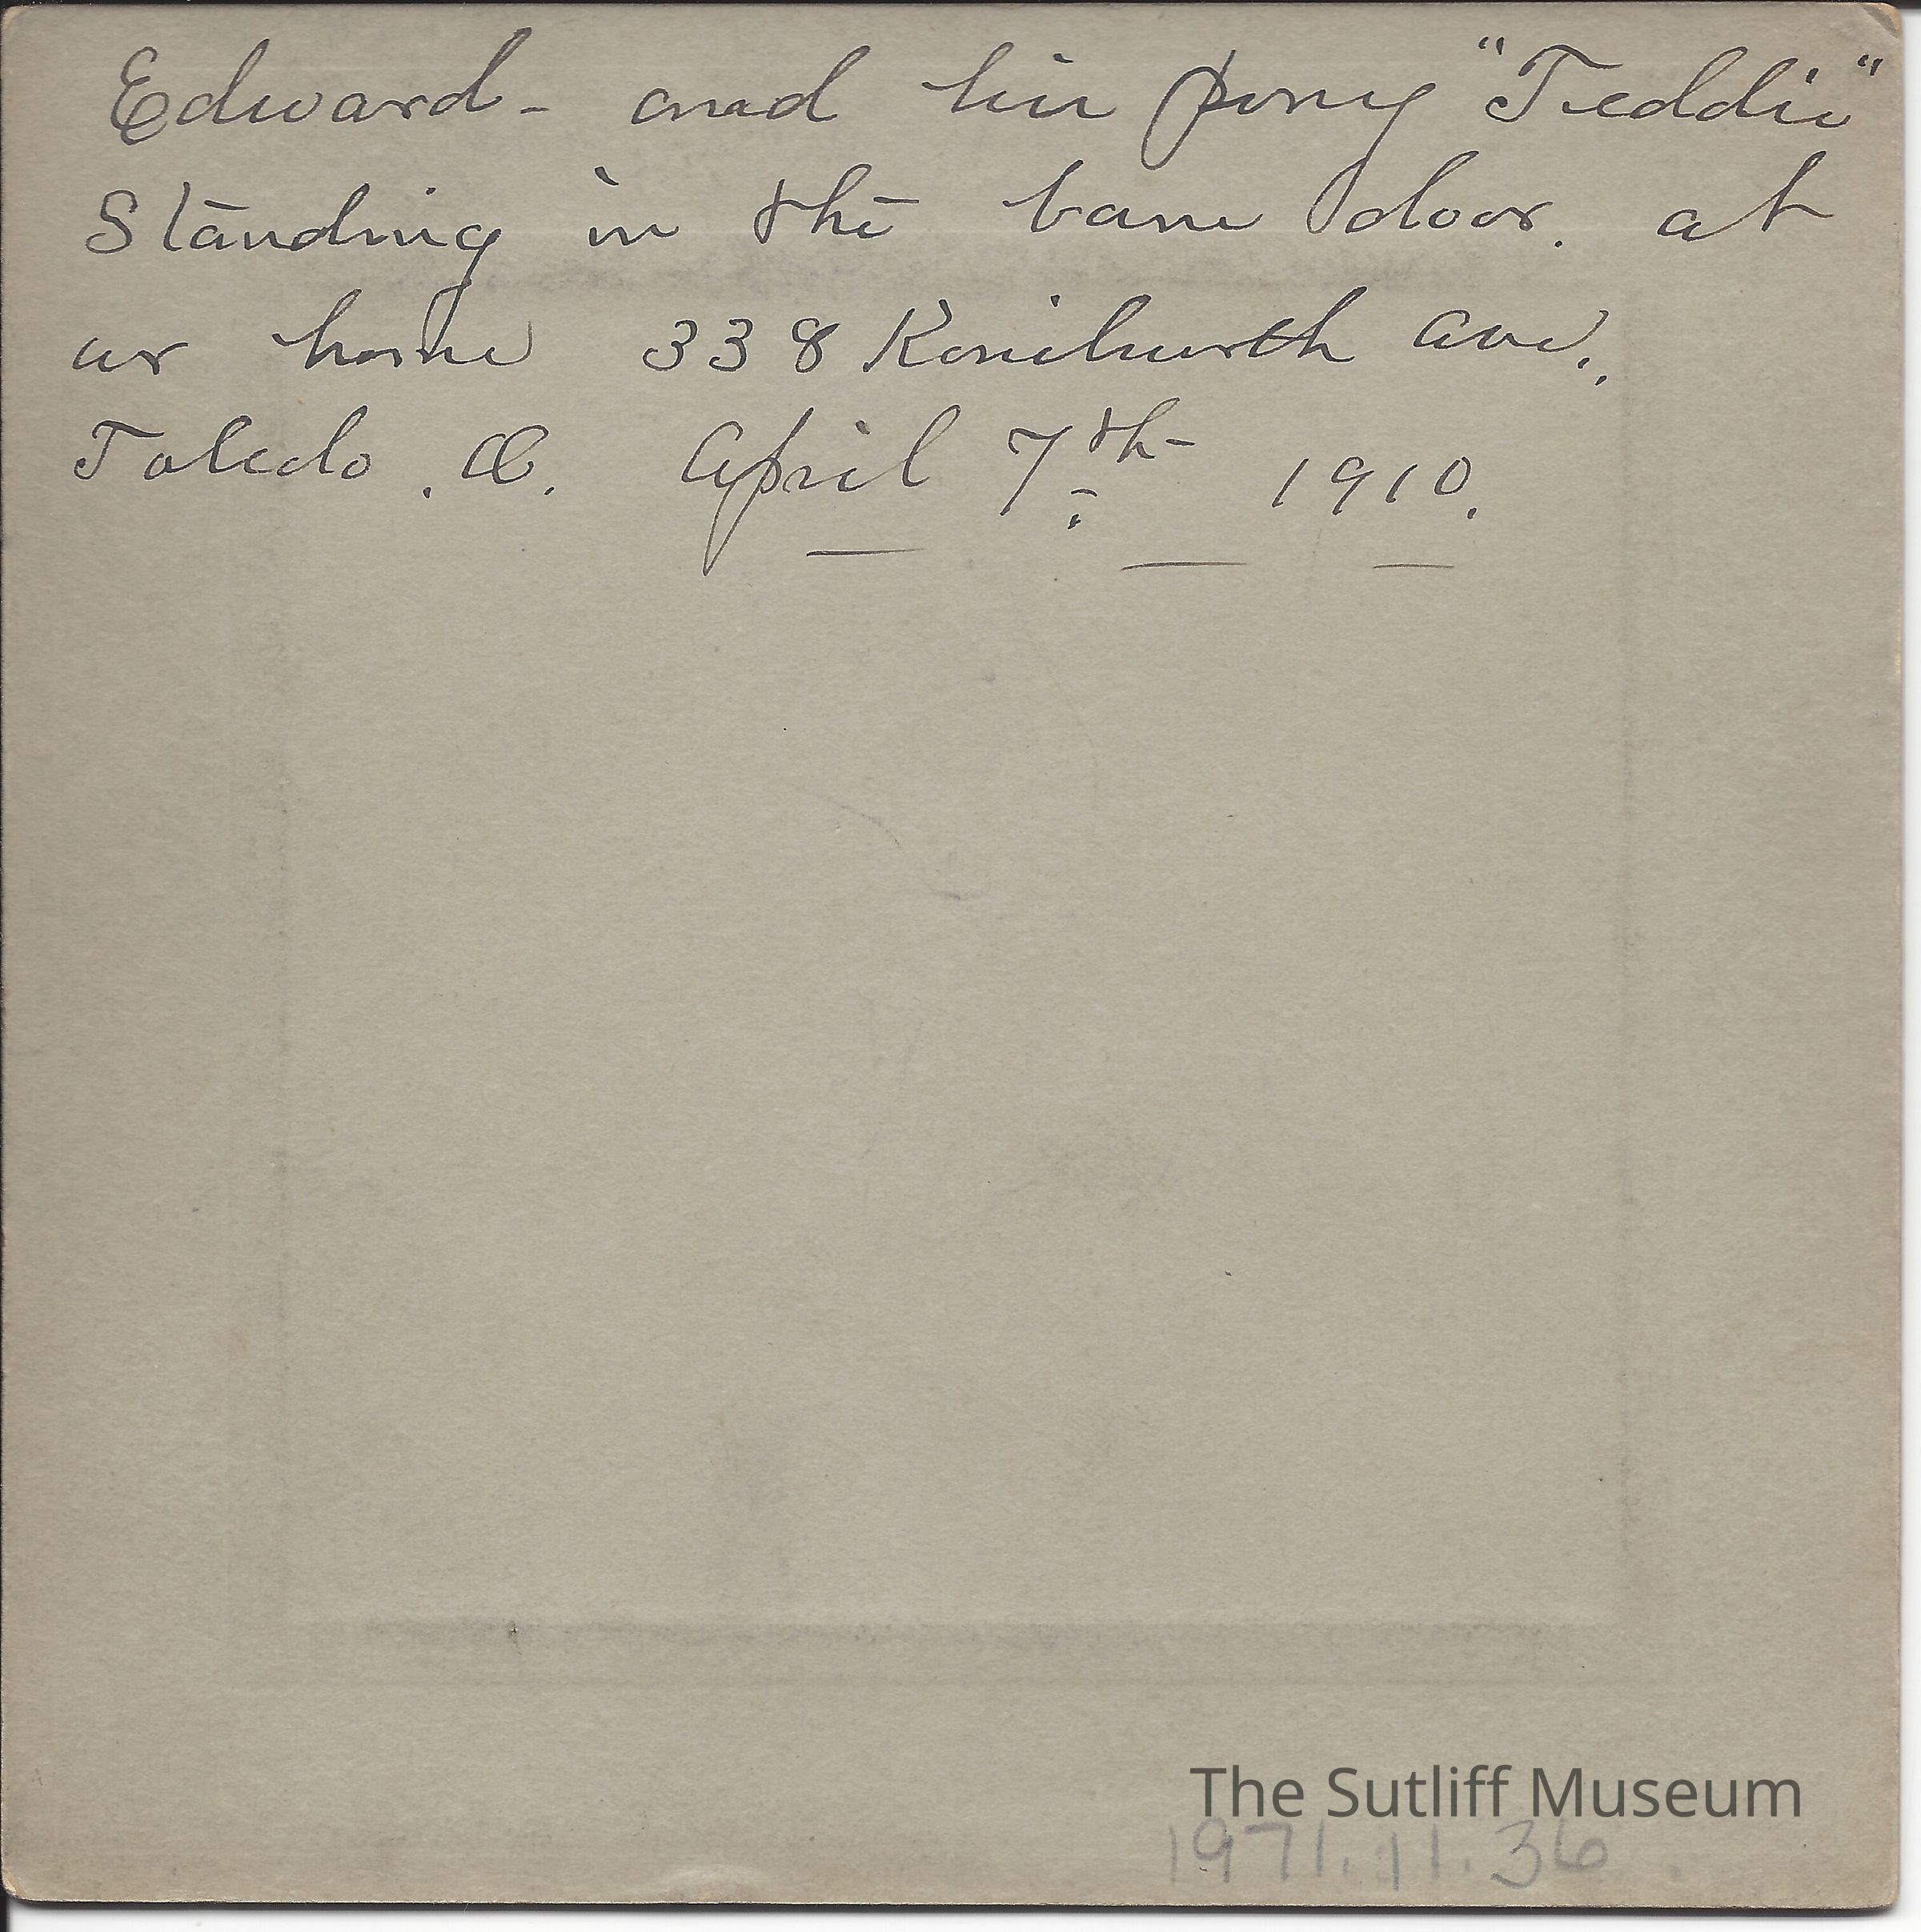 Edward - and his pony "Teddie"
Standing in the barn door. at
our home 338 Kenilworth Ave.,
Toledo, O. April 7th 1910.
The Sutliff Museum
1971.11.36